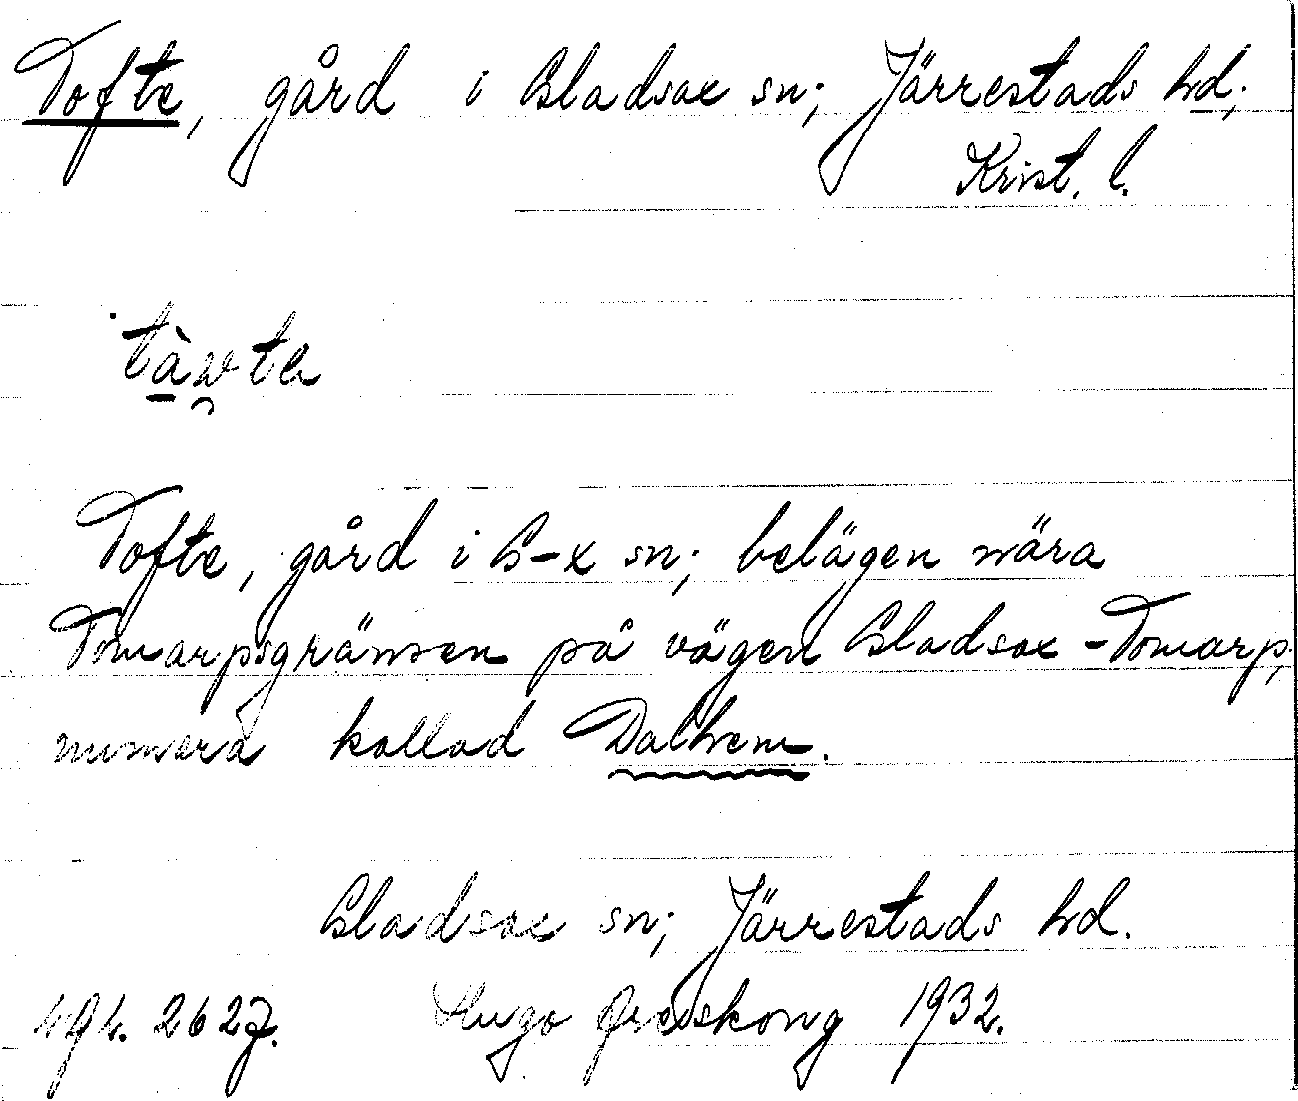 Tofte, gård i Gladsax sn; Järrestads hd;
Krist. l.
tàwta
Tofte, gård i G-x sn; belägen nära
Tomarpsgränsen på vägen Gladsax - Tomarp,
numera kallad Dalhem.
Gladsax sn; Järrestads hd.
Hugo Areskoug 1932.